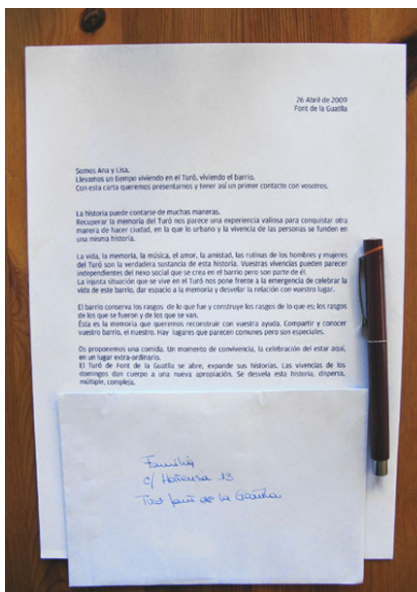 26 Abril de 2009
Font de la Guatlla
Somos Ana y Lisa.
Llevamos un tiempo viviendo en el Turó, viviendo el barrio.
Con esta carta queremos presentarnos y tener así un primer contacto con vosotros.
La historia puede contarse de muchas maneras.
Recuperar la memoria del Turó nos parece una experiencia valiosa para conquistar otra
manera de hacer ciudad, en la que lo urbano y la vivencia de las personas se funden en
una misma historia.
La vida, la memoria, la música, el amor, la amistad, las rutinas de los hombres y mujeres
del Turó son la verdadera sustancia de esta historia. Vuestras vivencias pueden parecer
independientes del nexo social que se crea en el barrio pero son parte de él.
La injusta situación que se vive en el Turó nos pone frente a la emergencia de celebrar la
vida de este barrio, dar espacio a la memoria y desvelar la relación con vuestro lugar.
El barrio conserva los rasgos de lo que fue y construye los rasgos de lo que es; los rasgos
de los que se fueron y de los que se van.
Ésta es la memoria que queremos reconstruir con vuestra ayuda. Compartir y conocer
vuestro barrio, el nuestro. Hay lugares que parecen comunes pero son especiales.
Os proponemos una comida. Un momento de convivencia, la celebración del estar aquí,
en un lugar extra-ordinario.
El Turó de Font de la Guatlla se abre, expande sus historias. Las vivencias de los
domingos dan cuerpo a una nueva apropiación. Se desvela esta historia, dispersa,
múltiple, compleja.
Familia
c/ 13
de la Guatlla